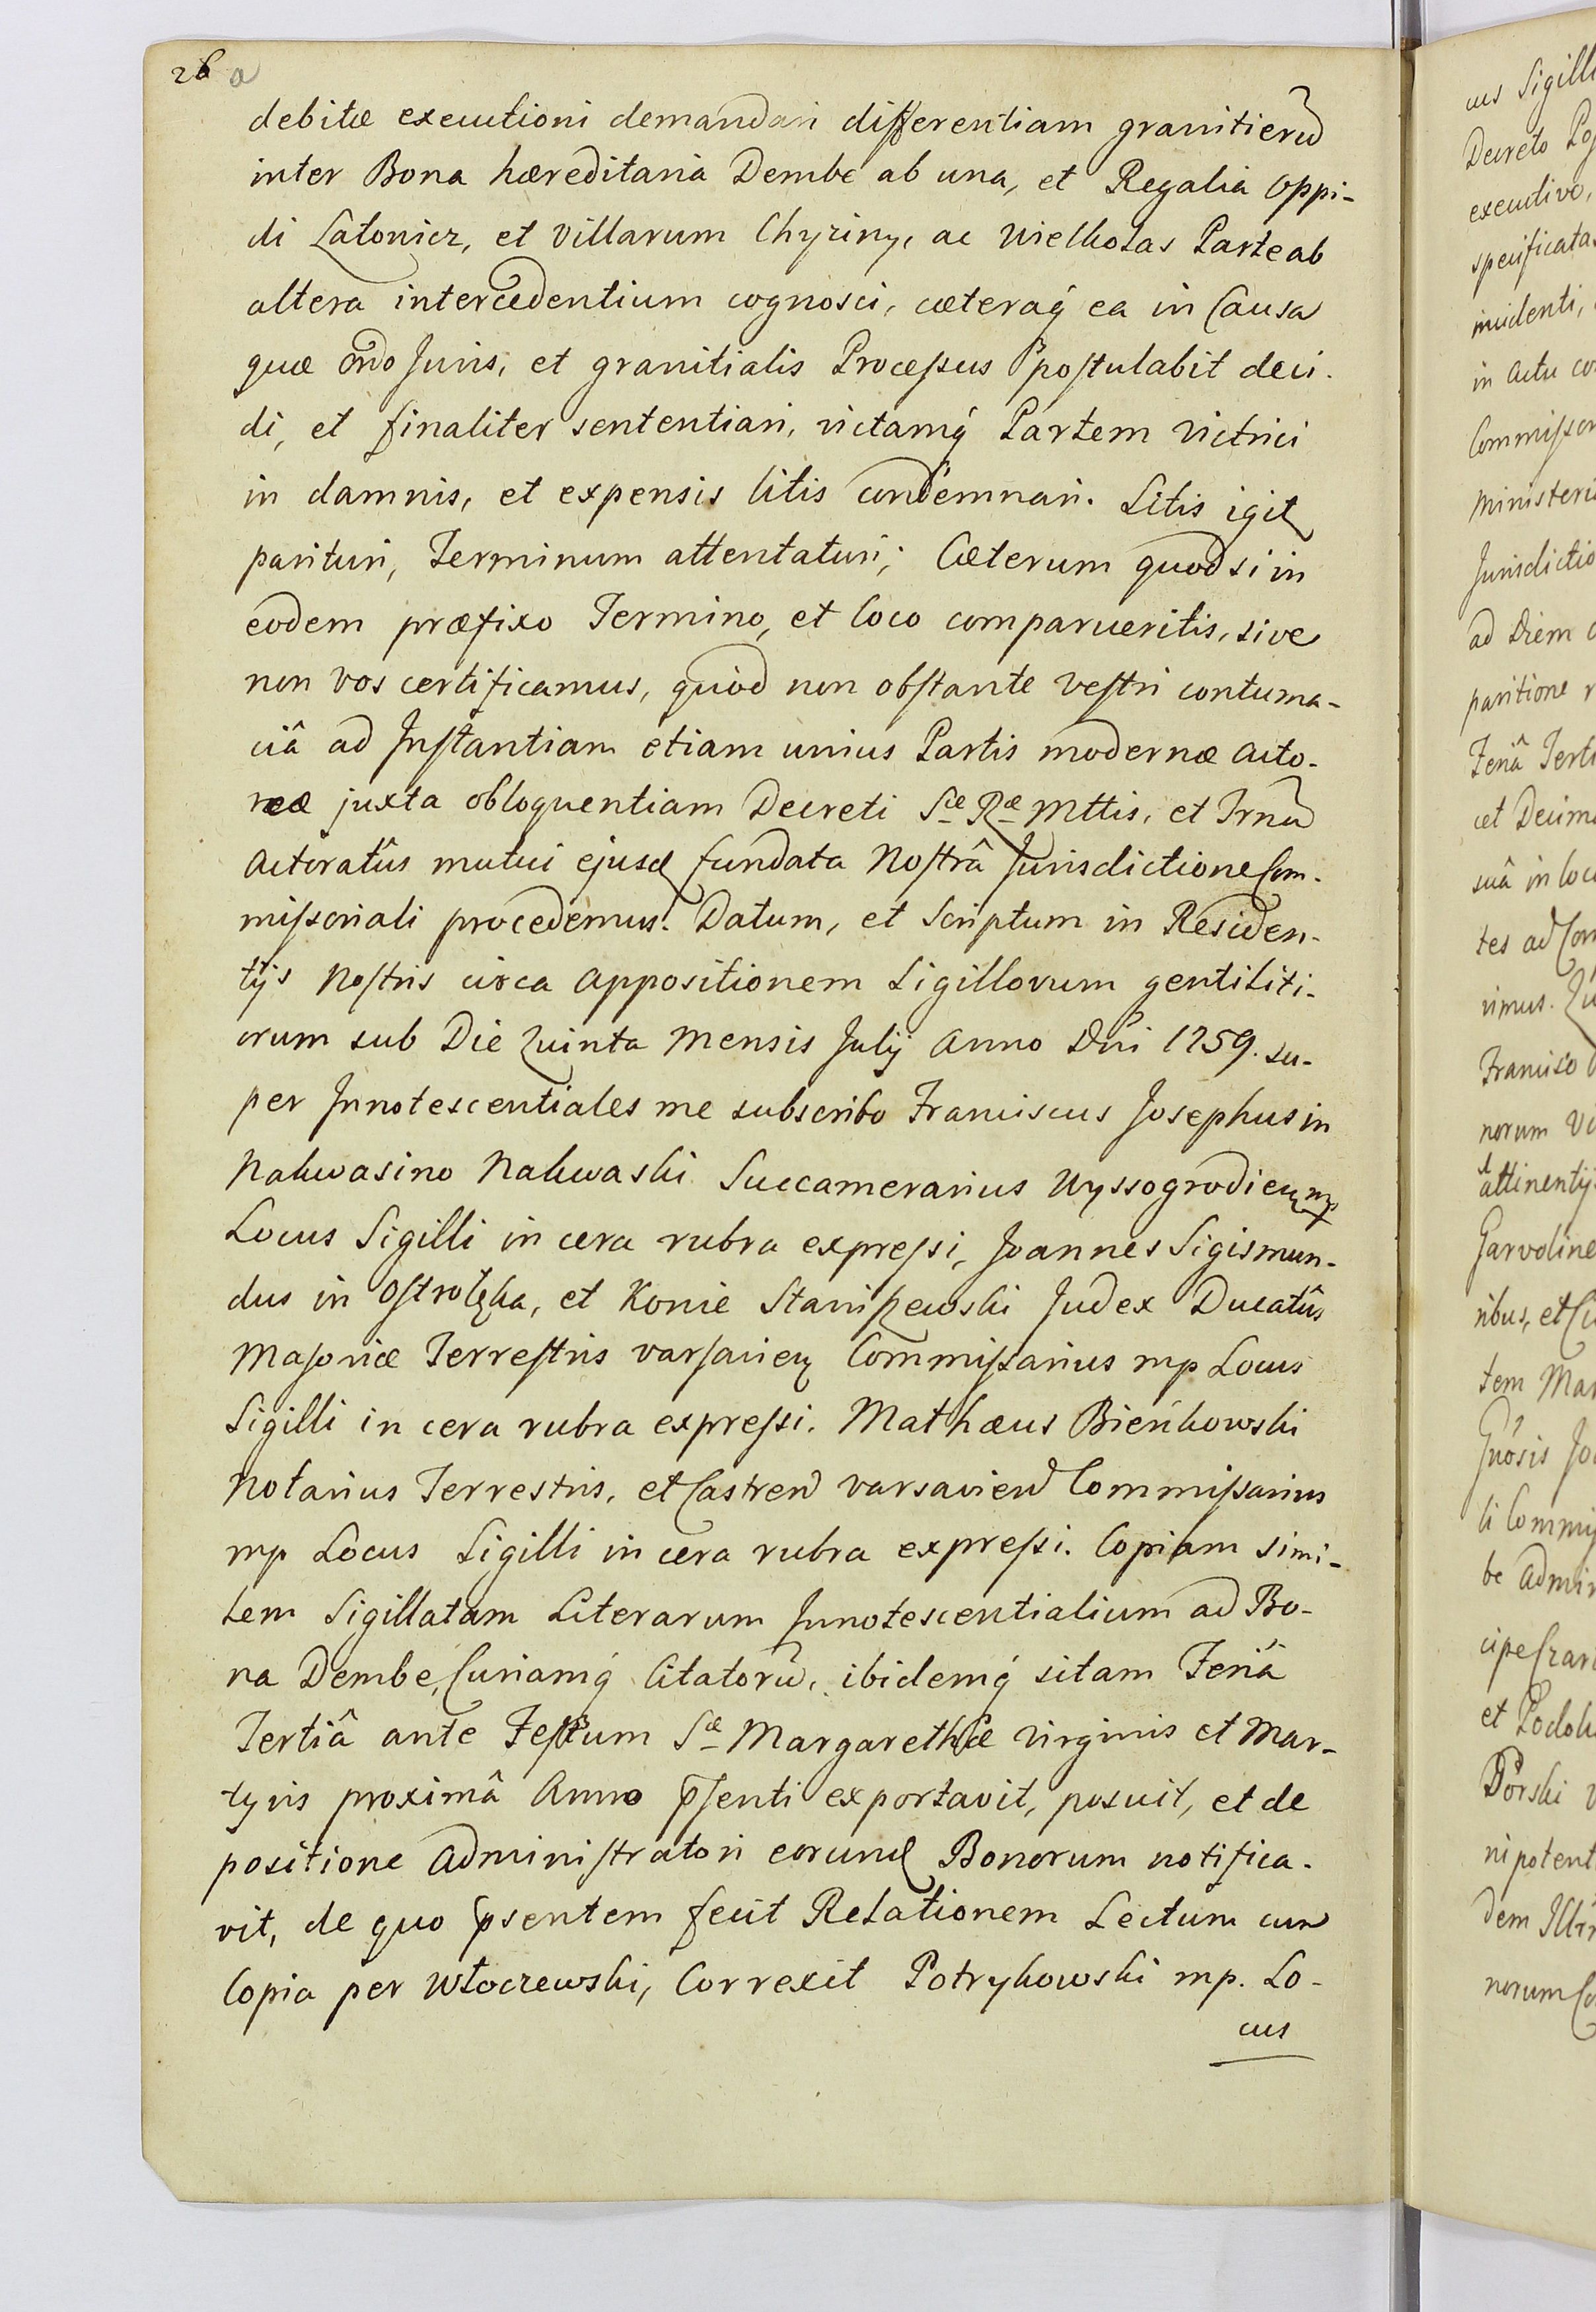 26 a
debitæ executioni demandari differentiam granitierũ
inter Bona hæreditaria Dembe ab una, et Regalia Oppi-
di Latonicz, et Villarum Chyziny, ac Wielholas Parte ab
altera intercedentium cognosci, cæteraq́ ea in Causa
quæ ordo Juris, et granitialis Processus postulabit deci-
di, et finaliter sententiari, victamq́ Partem Victrici
in damnis, et expensis litis condemnari. Litis igit
parituri, Terminum attentaturi; Cæterum quod si in
eodem præfixo Termino, et loco comparueritis, sive
non vos certificamus, quod non obstante vestri contuma-
ciâ ad Instantiam etiam unius Partis modernæ Acto-
reæ juxta obloquentiam Decreti Sæ Ræ Mttis, et Trnũ
Actoratûs mutui ejusd fundata Nostrâ Jurisdictione Com-
missoriali procedemus. Datum, et Scriptum in Residen-
tijs Nostris circa Appositionem Sigillorum gentiliti-
orum sub Die Quinta Mensis Julij Anno Dni 1759. su-
per Innotescentiales me subscribo Franciscus Josephus in
Nakwasino Nakwaski Succamerarius Wyssogrodien mp
Locus Sigilli in cera rubra expressi, Joannes Sigismun-
dus in Ostrołęka, et Konie Staniszewski Judex Ducatûs
Masoviæ Terrestris Varsavien Commissarius mp Locus
Sigilli in cera rubra expressi. Mathæus Bieńkowski
Notarius Terrestris, et Castren Varsavien Commissarius
mp Locus Sigilli in cera rubra expressi. Copiam simi-
lem Sigillatam Literarum Innotescentialium ad Bo-
na Dembe, Curiamq́ Citatorũ, ibidemq́ sitam Feriâ
Tertiâ ante Festum Sæ Margarethæ Virginis et Mar-
tyris proximâ Anno p̃senti exportavit, posuit, et de
positione Administratori eorund Bonorum notifica-
vit, de quo p̃sentem fecit Relationem Lectum cum
Copia per Włoczewski, Correxit Potrykowski mp. Lo-
cus
cus Sigilli
Decreto
executivo,
specificata
incidenti,
in Actu
Commissor
Ministeri
Jurisdictio
ad Diem
paritione
Feriâ Terti
et Decima
suâ in loc
tes ad Com
rimus.
Francisco
norum
attinentij
Garvoline
ribus, et
tem Mar
Gnosis Jo
li Commis
be Admin
cipe Czar
et Podol
Dorski
nipotent
dem Illr
norum